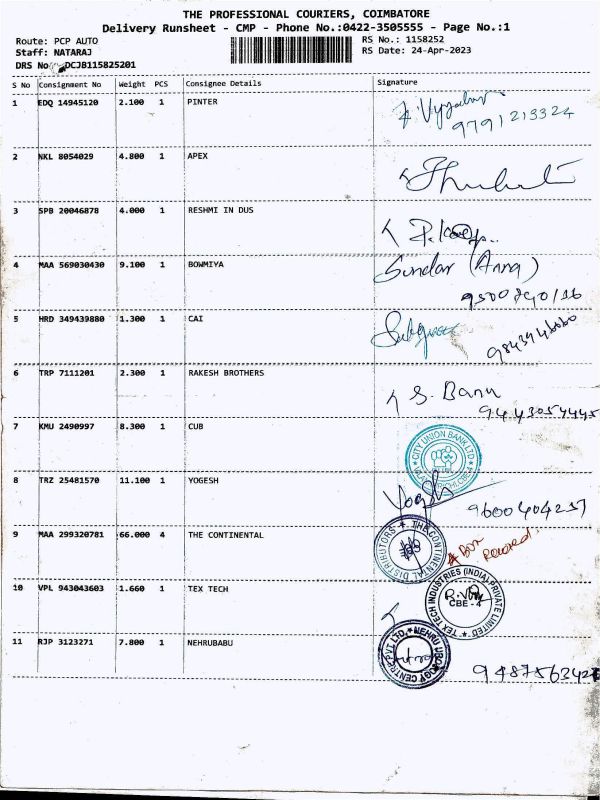 THE PROFESSIONAL COURIERS, COIMBATORE
Delivery Runsheet - CMP - Phone No.:0422-3505555 - Page No.:1
Route: PCP AUTO
Staff: NATARAJ
DRS No :DCJB115825201
RS No.: 1158252
RS Date: 24-Apr-2023
S No Consignment No Weight PCS Consignee Details Signature
1 EDQ 14945120 2.100 1 PINTER
9791213324
2 NKL 8054029 4.800 1 APEX
3 SPB 20046878 4.000 1 RESHMI IN DUS
4 MAA 569030430 9.100 1 BOWMIYA Sundar (Anna)
5 HRD 349439880 1.300 1 CAI
6 TRP 7111201 2.300 1 RAKESH BROTHERS S. Banu
9443054445
7 KMU 2490997 8.300 1 CUB
CITY UNION BANK LTD
8 TRZ 25481570 11.100 1 YOGESH Yogesh
9600404237
9 MAA 299320781 66.000 4 THE CONTINENTAL
THE CONTINENTAL DISTRIBUTORS
4 Box Received.
10 VPL 943043603 1.660 1 TEX TECH
TEX TECH INDUSTRIES (INDIA) PRIVATE LIMITED
CBE - 4
11 RJP 3123271 7.800 1 NEHRUBABU